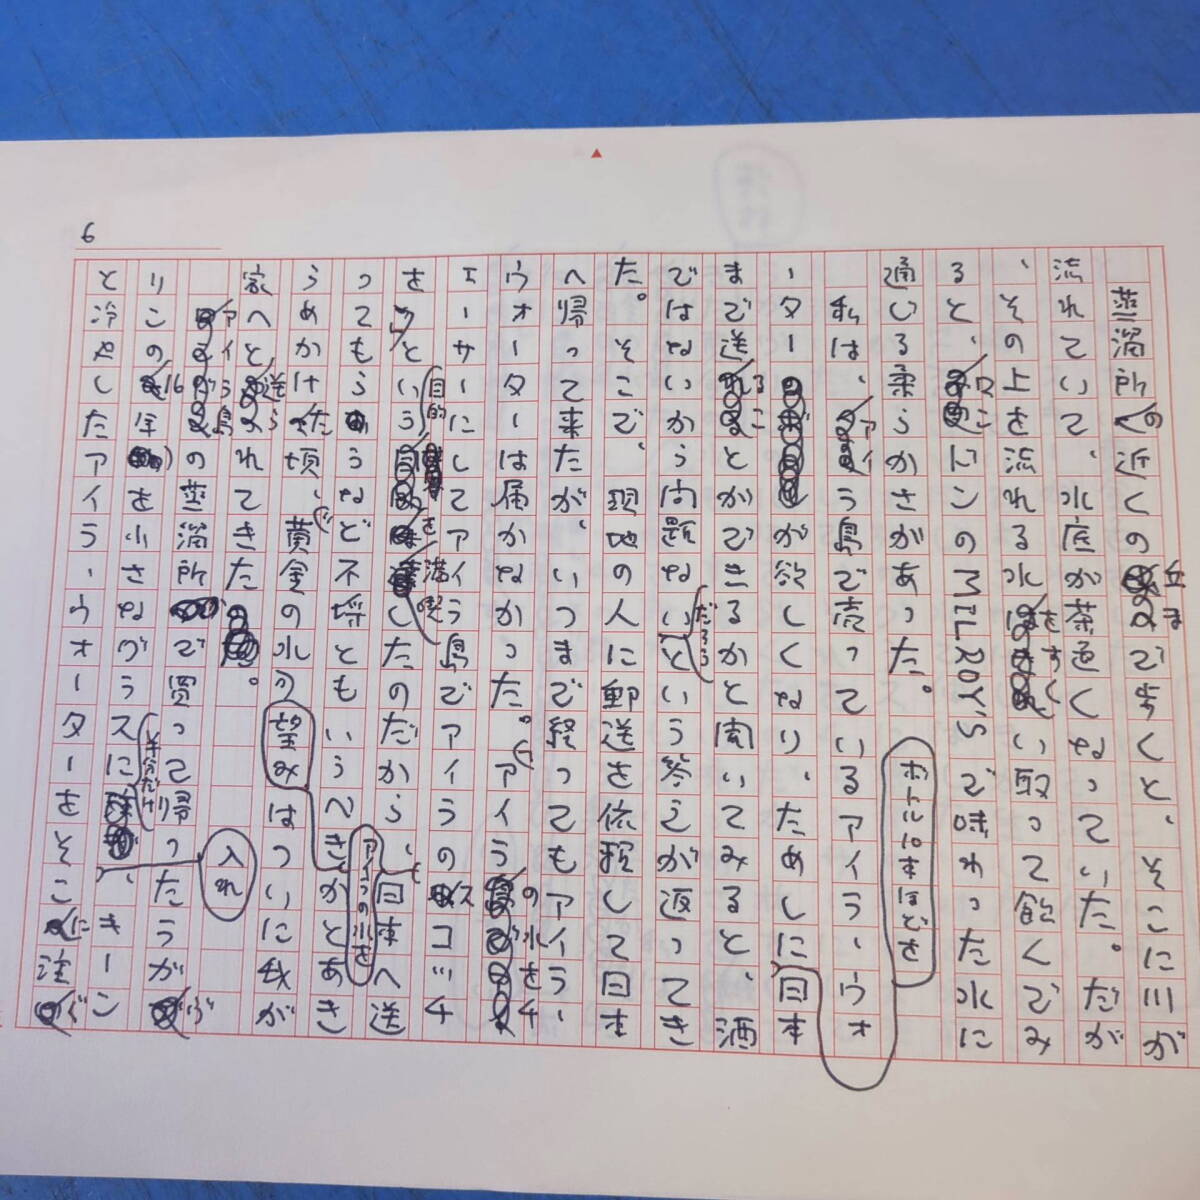 6
蒸溜所の近くの丘まで歩くと、そこに川が
流れていて、水底が茶色くなっていた。だが
、その上を流れる水をすくい取って飲んでみ
ると、ロンドンのMILROY'Sで味わった水に
通じる柔らかさがあった。
私は、アイラ島で売っているアイラ・ウォ
ーターが欲しくなり、ためしにボトル10本ほどを日本
まで送ることができるかと聞いてみると、酒
ではないから問題ないだろうという答えが返ってき
た。そこで、現地の人に郵送を依頼して日本
へ帰って来たが、いつまで経ってもアイラ・
ウォーターは届かなかった。アイラの水をチ
ェーサーにしてアイラ島でアイラのスコッチ
をという目的を満喫したのだから、アイラの水を日本へ送
ってもらうなど不埒ともいうべきかとあき
らめかけた頃、黄金の水の望みはついに我が
家へと送られてきた。
アイラ島の蒸溜所で買って帰ったうがぶ
りこの16年を小さなグラスに半分だけ入れ、キーン
と冷やしたアイラ・ウォーターをそこに注ぐ